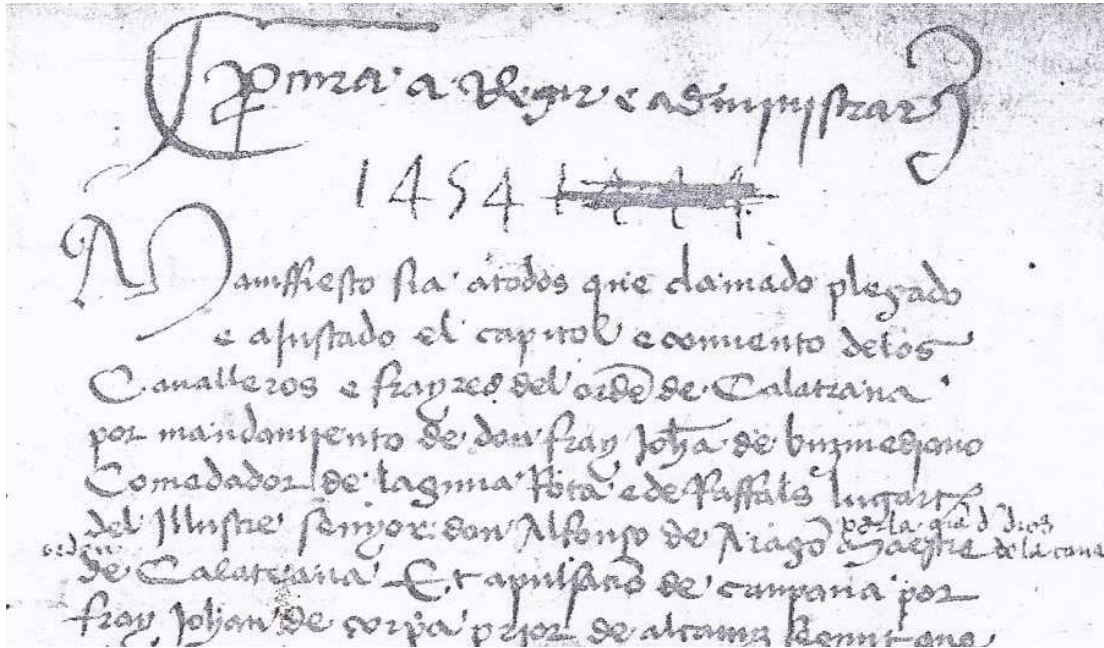 Procura a Regir e administrar
1454
Maniffiesto sia atodos que clamado plegado
e aJustado el capitol e conuento delos
Caualleros e frayres del ordē de Calatraua
por mandamiento de don fray Johā de
Comēdador de laguna Rota e de Raffals lugart
del Illustre senyor don Alfonso de Aragō por la grā d dios Maestre dela caua
orden
de Calatraua Et apulsaciō de campana por
fray Johan de prior de alcanyz